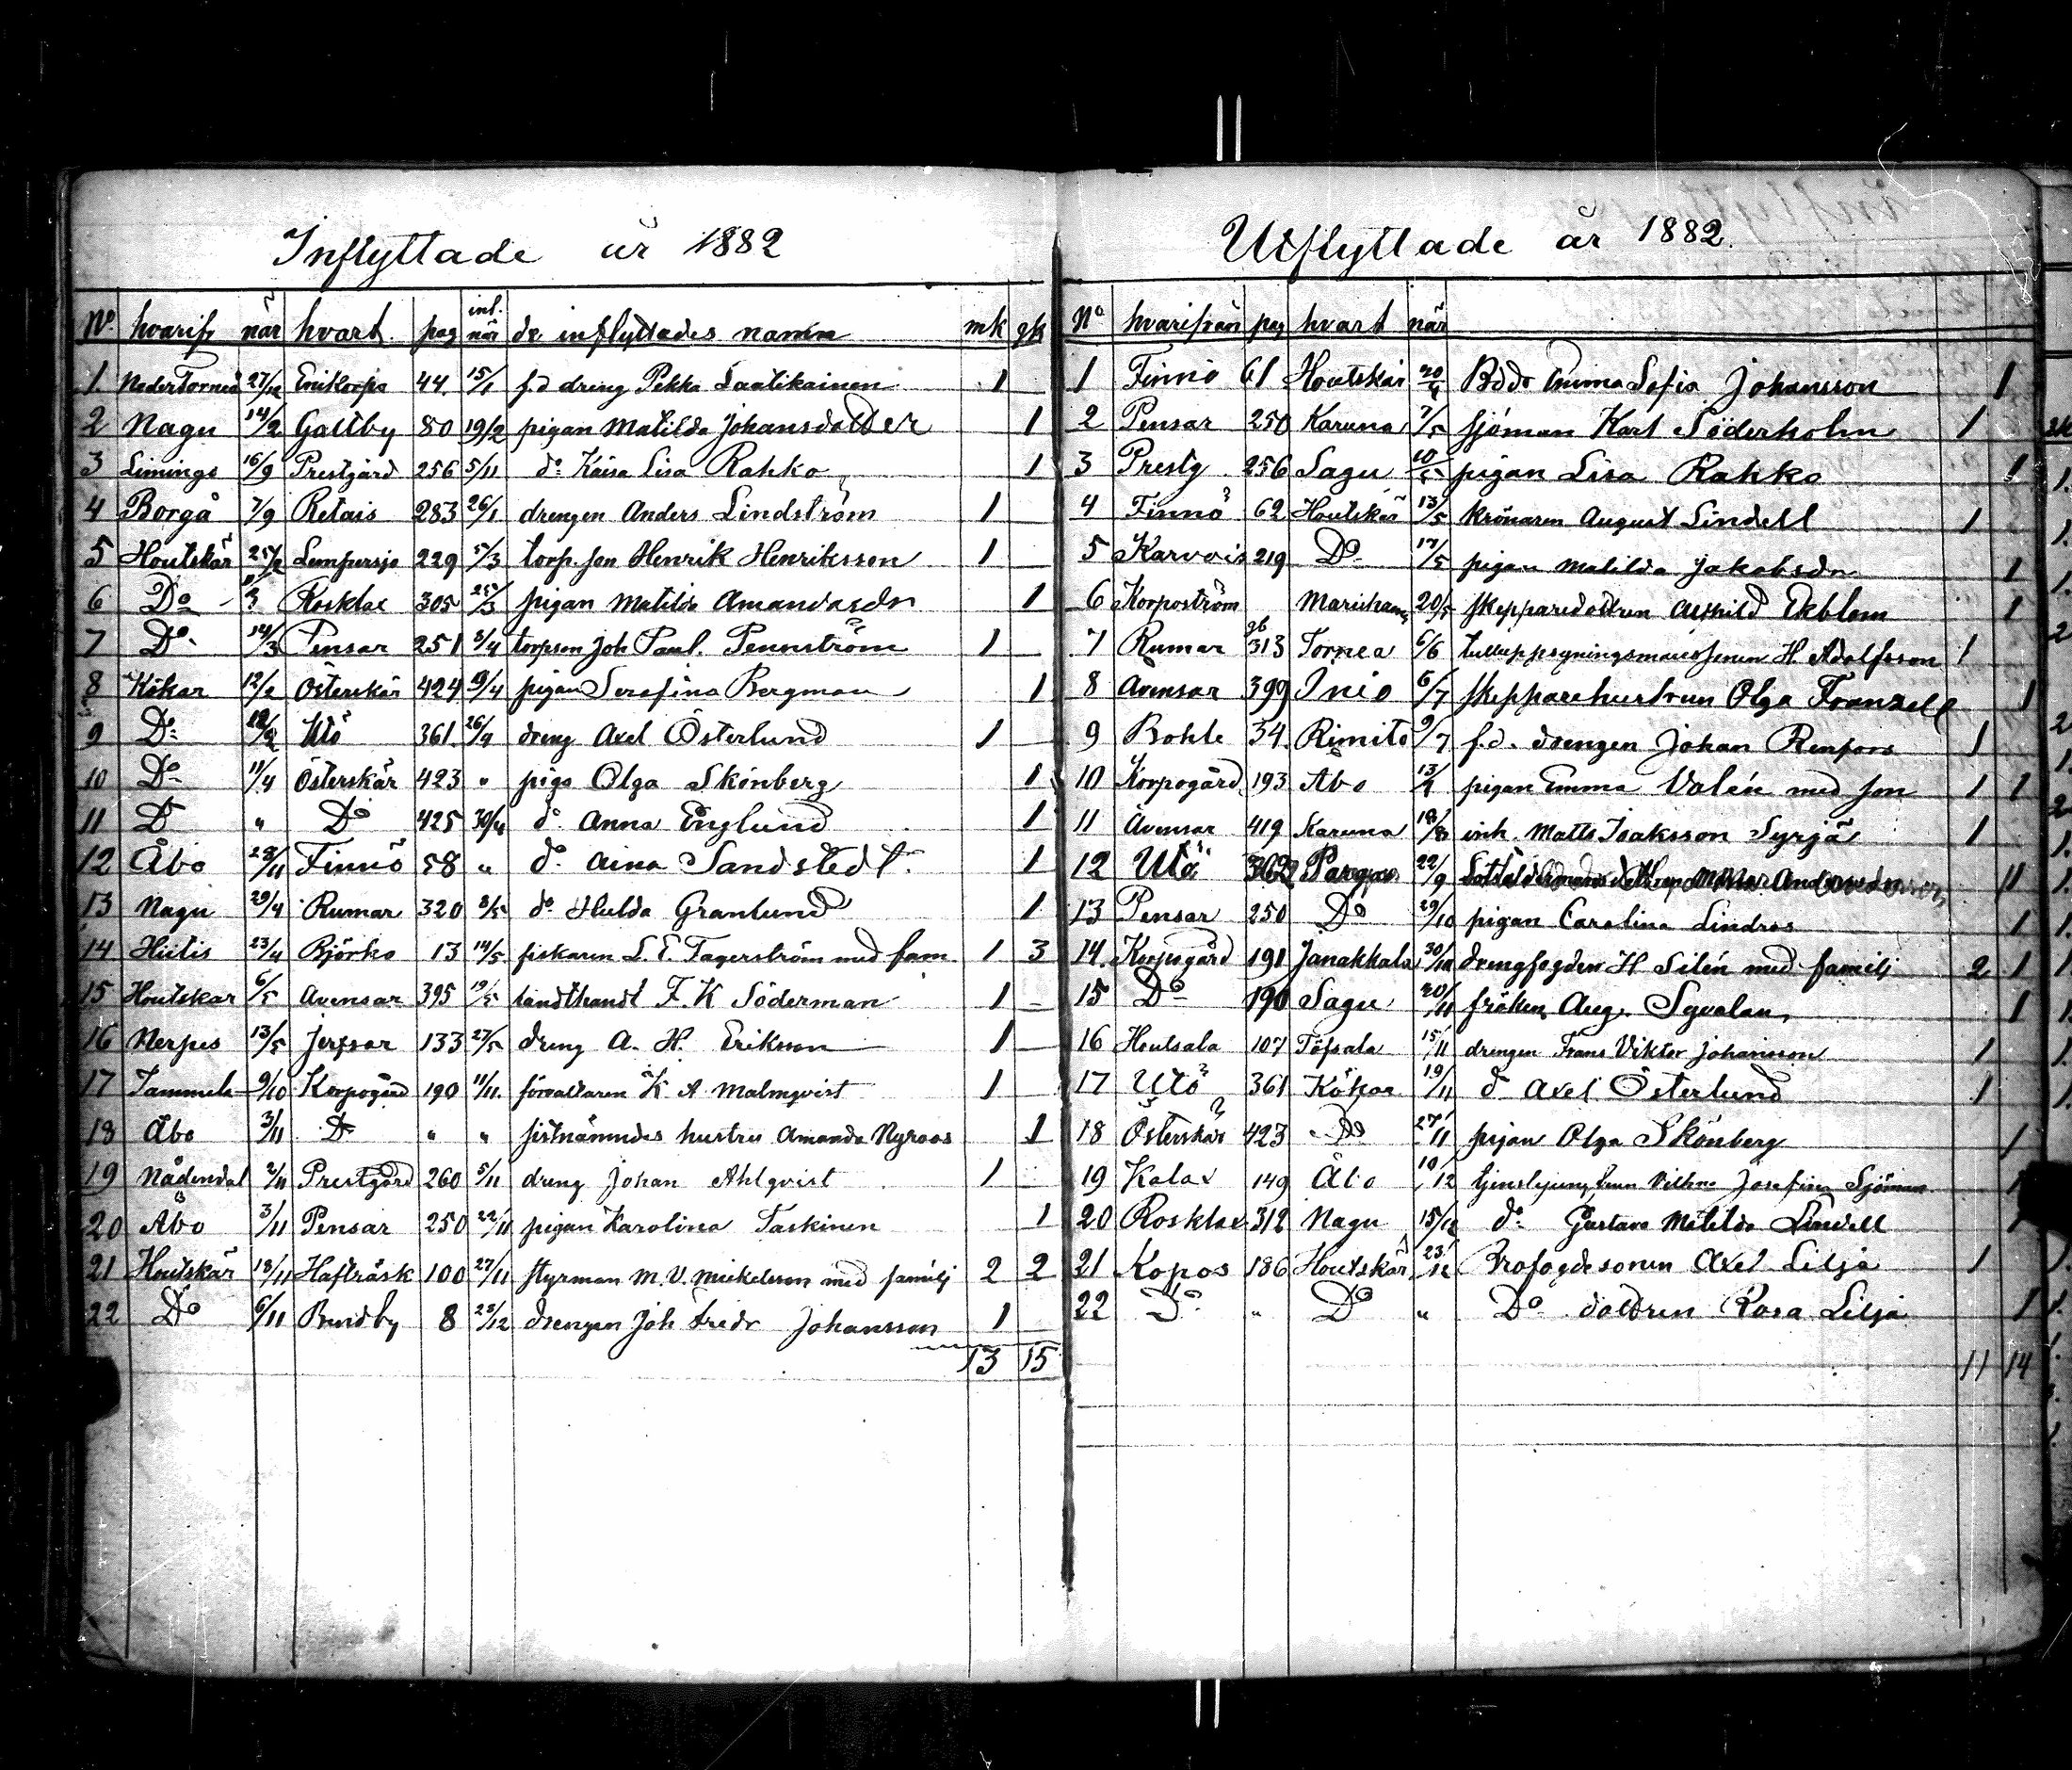 Inflyttade år 1882
No hvarifr när hvart pag inl. när de inflyttades namn mk qk
1 Nedertorneå 27/12 Enikorpo 44 15/1 f.d dreng Pekka Laatikainen 1
2 Nagu 14/2 Galtby 80 19/2 pigan Matilda Johansdotter 1
3 Limingo 16/9 Prestgård 256 5/11 do Kaisa Lisa Rahko 1
4 Borgå 7/9 Retais 283 26/1 drengen Anders Lindström 1
5 Houtskär 25/2 Lempersjö 229 5/3 torp. son Henrik Henriksson 1
6 Do Rosklax 305 25/3 pigan Matilda Amandasdr 1
7 Do 14/3 Pensar 251 3/4 torpson Joh Paul. Pennström 1
8 Kökar 12/2 Österskär 424 9/4 pigan Serafina Bergman 1
9 Do Utö 361 26/4 dreng Axel Österlund 1
10 Do 11/4 Österskär 423 " piga Olga Skönberg 1
11 D " Do 425 30/4 do Anna Englund 1
12 Åbo 28/11 Finnö 58 " do Aina Sandstedt. 1
13 Nagu 29/4 Rumar 320 8/5 do Hulda Granlund 1
14 Hiitis 23/4 Björko 13 14/5 fiskaren L. E. Fagerström med fam 1 3
15 Houtskar 6/5 Avensar 395 19/5 landthandl F. K Söderman 1
16 Nerpes 13/5 Jerfsor 133 27/5 dreng A. H. Eriksson 1
17 Tammela 9/10 Korpogård 190 11/11. förvaltaren K A Malmqvist 1
18 Åbo 3/11 D " " sistnämndes hustru Amanda Nyroos 1
19 Nådendal 2/11 Prestgård 260 5/11 dreng Johan Ahlqvist 1
20 Åbo 3/11 Pensar 250 22/11 pigan Karolina Taskinen 1
21 Houtskär 18/11 Hafträsk 100 27/11 styrman M. V. Mickelsson med familj 2 2
22 Do 6/11 Brudby 8 28/12 drengen Joh Fredr Johansson 1
13 15
Utflyttade år 1882.
No hvarifrån pag hvart när
1 Finnö 61 Houtskär 20/4 Bddr Emma Sofia Johansson 1
2 Pensar 250 Karuna 7/5 sjöman Karl Söderholm 1
3 Prestg 256 Sagu 10/5 pigan Lisa Rahko 1
4 Finnö 62 Houtskär 13/5 kronaren August Lindell 1
5 Karvois 219 Do 17/5 pigan Matilda Jakobsdr 1
6 Korpoström Mariehamn 20/5 skepparedottren Alfhild Ekblom 1
7 Rumar 313 Tornea 6/6 tulluppsyningsmans sonen H. Adolfsson 1
8 Avensar 399 Inio 6/7 skepparehustrun Olga Franzell 1
9 Bohle 34 Rimito 9/7 f.d. drengen Johan Renfors 1
10 Korpogård 193 Åbo 13/ pigan Emma Valén med son 1 1
11 Avensar 419 Karuna 18/8 inh. Matts Isaksson Syrjä 1
12 Utö 362 Pargas 22/9 11
13 Pensar 250 Do 29/10 pigan Carolina Lindros 1
14. Korpogård 191 Janakkala 30/10 drengfogden H Silén med familj 2 1
15 Do 190 Sagu 20/11 fröken Aug. Syvolan 1
16 Houtsala 107 Töfsala 15/11 drengen Frans Viktor Johansson 1
17 Utö 361 Kökar 19/11 d Axel Österlund 1
18 Österskär 423 Do 27/11 pigan Olga Skönberg 1
19 Kalax 149 Åbo 10/12 Josefina Sjöman 1
20 Rosklax 312 Nagu 15/12 do Gustava Matilda Lindell 1
21 Kopos 186 Houtskär 23/12 Brofogdesonen Axel Lilja 1
22 Do " Do " Do dottren Rosa Lilja 1
11 14